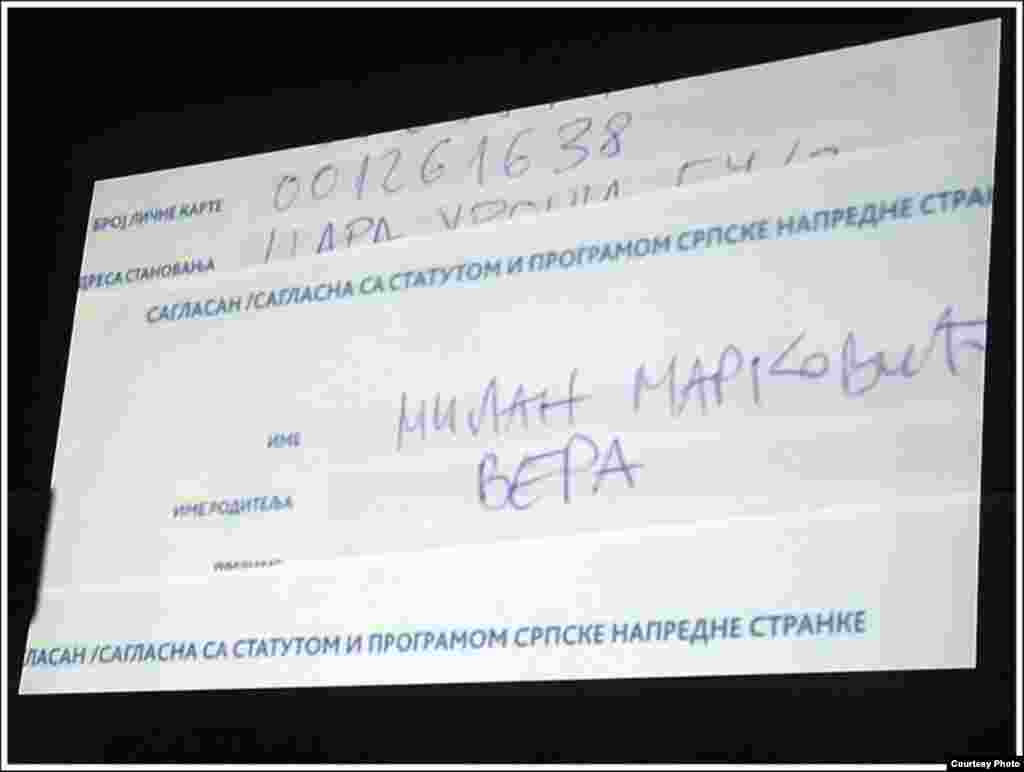 БРОЈ ЛИЧНЕ КАРТЕ 001261638
АДРЕСА СТАНОВАЊА ЦАРА
САГЛАСАН /САГЛАСНА СА СТАТУТОМ И ПРОГРАМОМ СРПСКЕ НАПРЕДНЕ СТРАН
ИМЕ МИЛАН МАРКОВИЋ
ИМЕ РОДИТЕЉА ВЕРА
ЛАСАН /САГЛАСНА СА СТАТУТОМ И ПРОГРАМОМ СРПСКЕ НАПРЕДНЕ СТРАНКЕ
Courtesy Photo